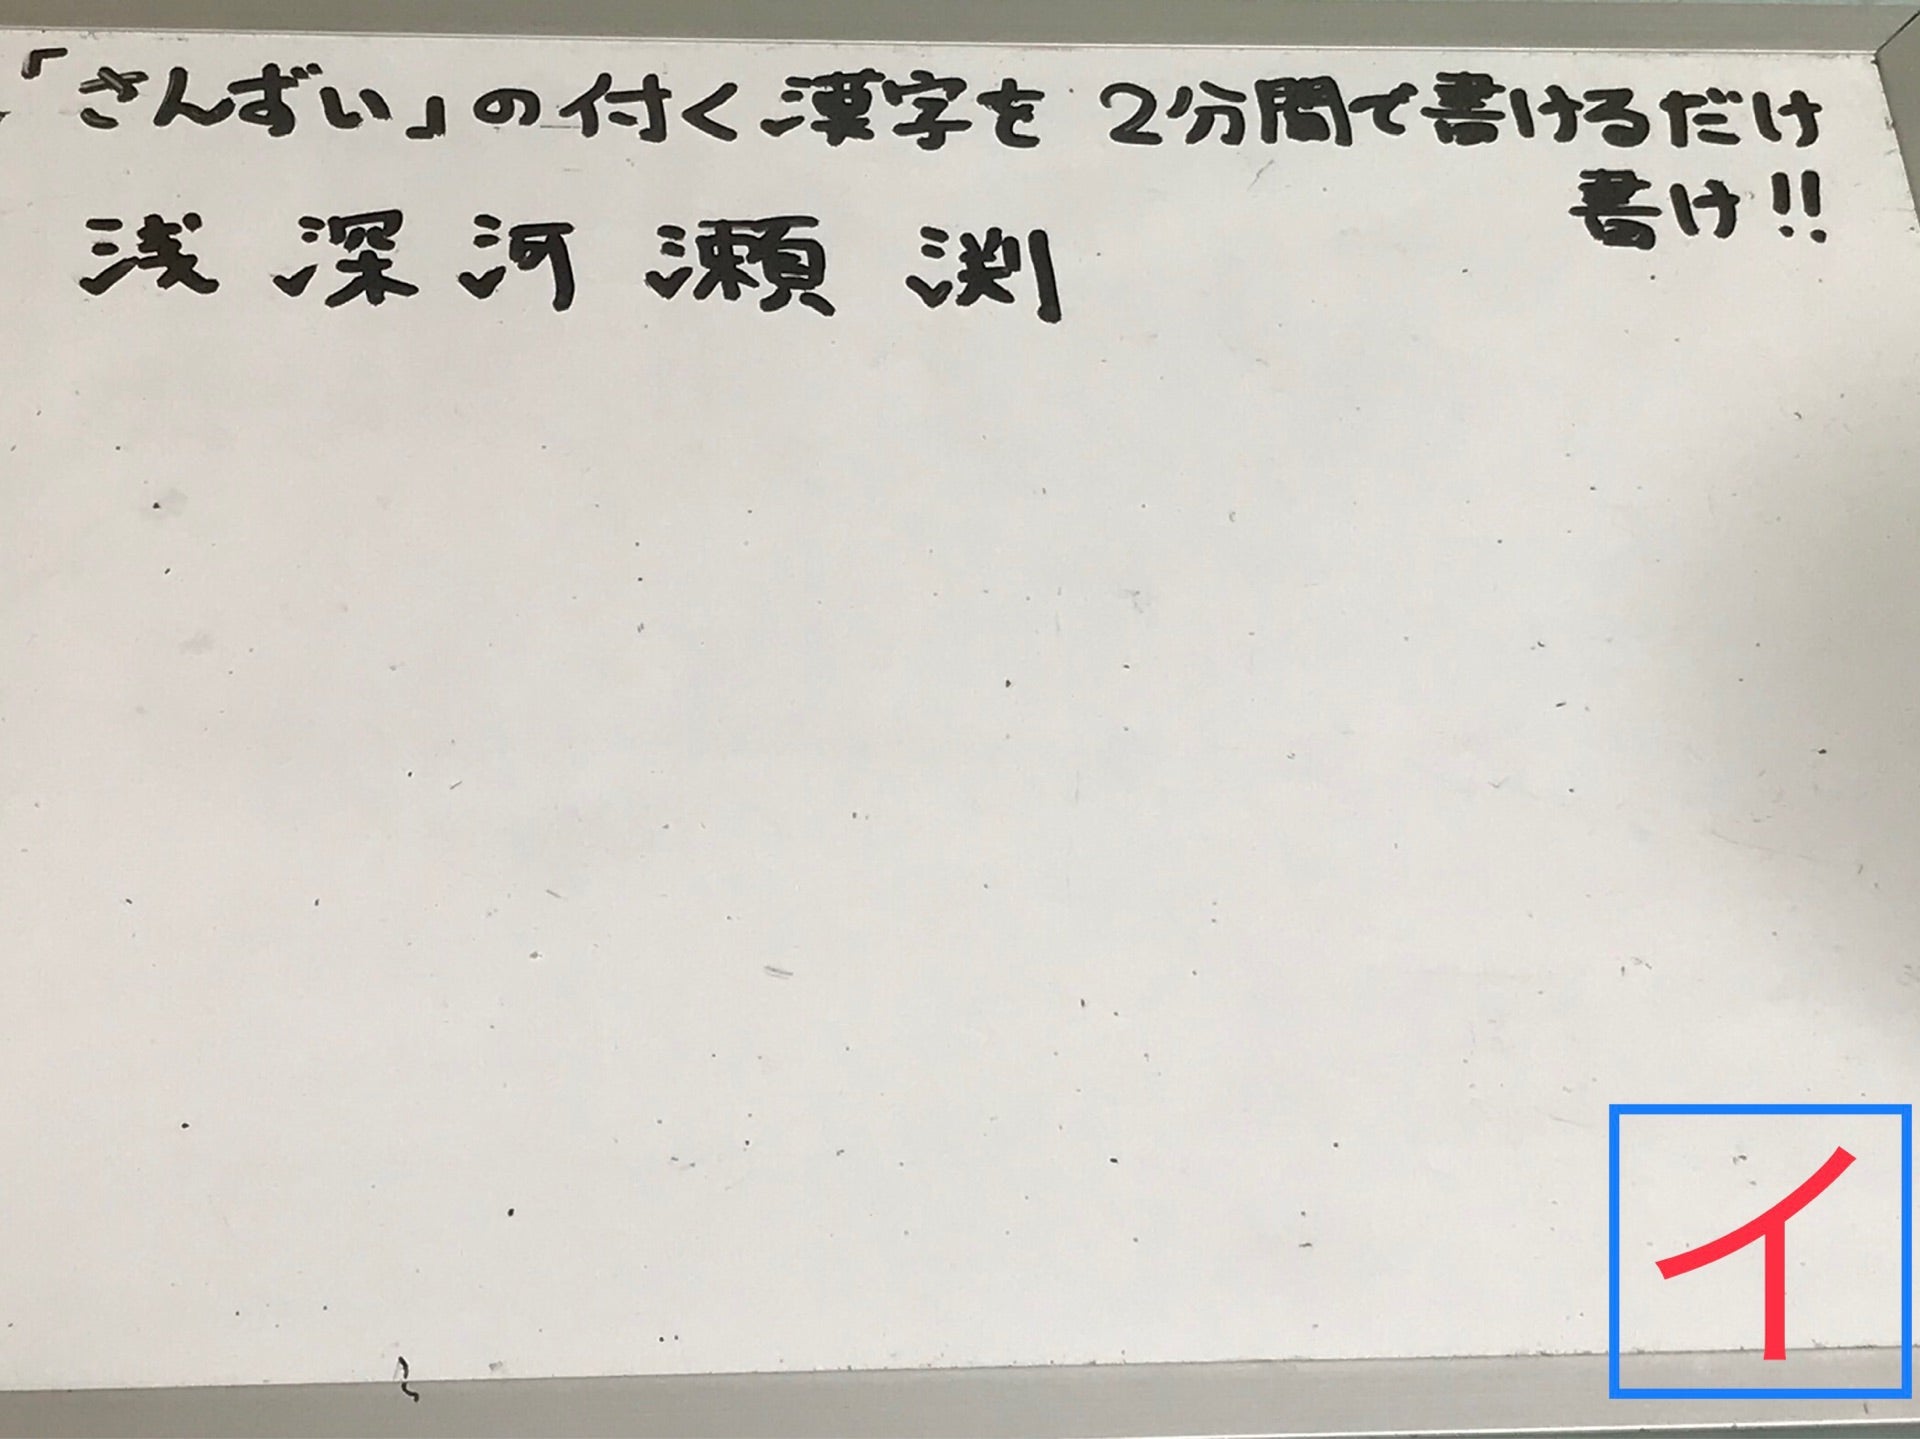 「さんずい」の付く漢字を 2分間で書けるだけ
書け!!
浅 深 河 瀬 渕
イ